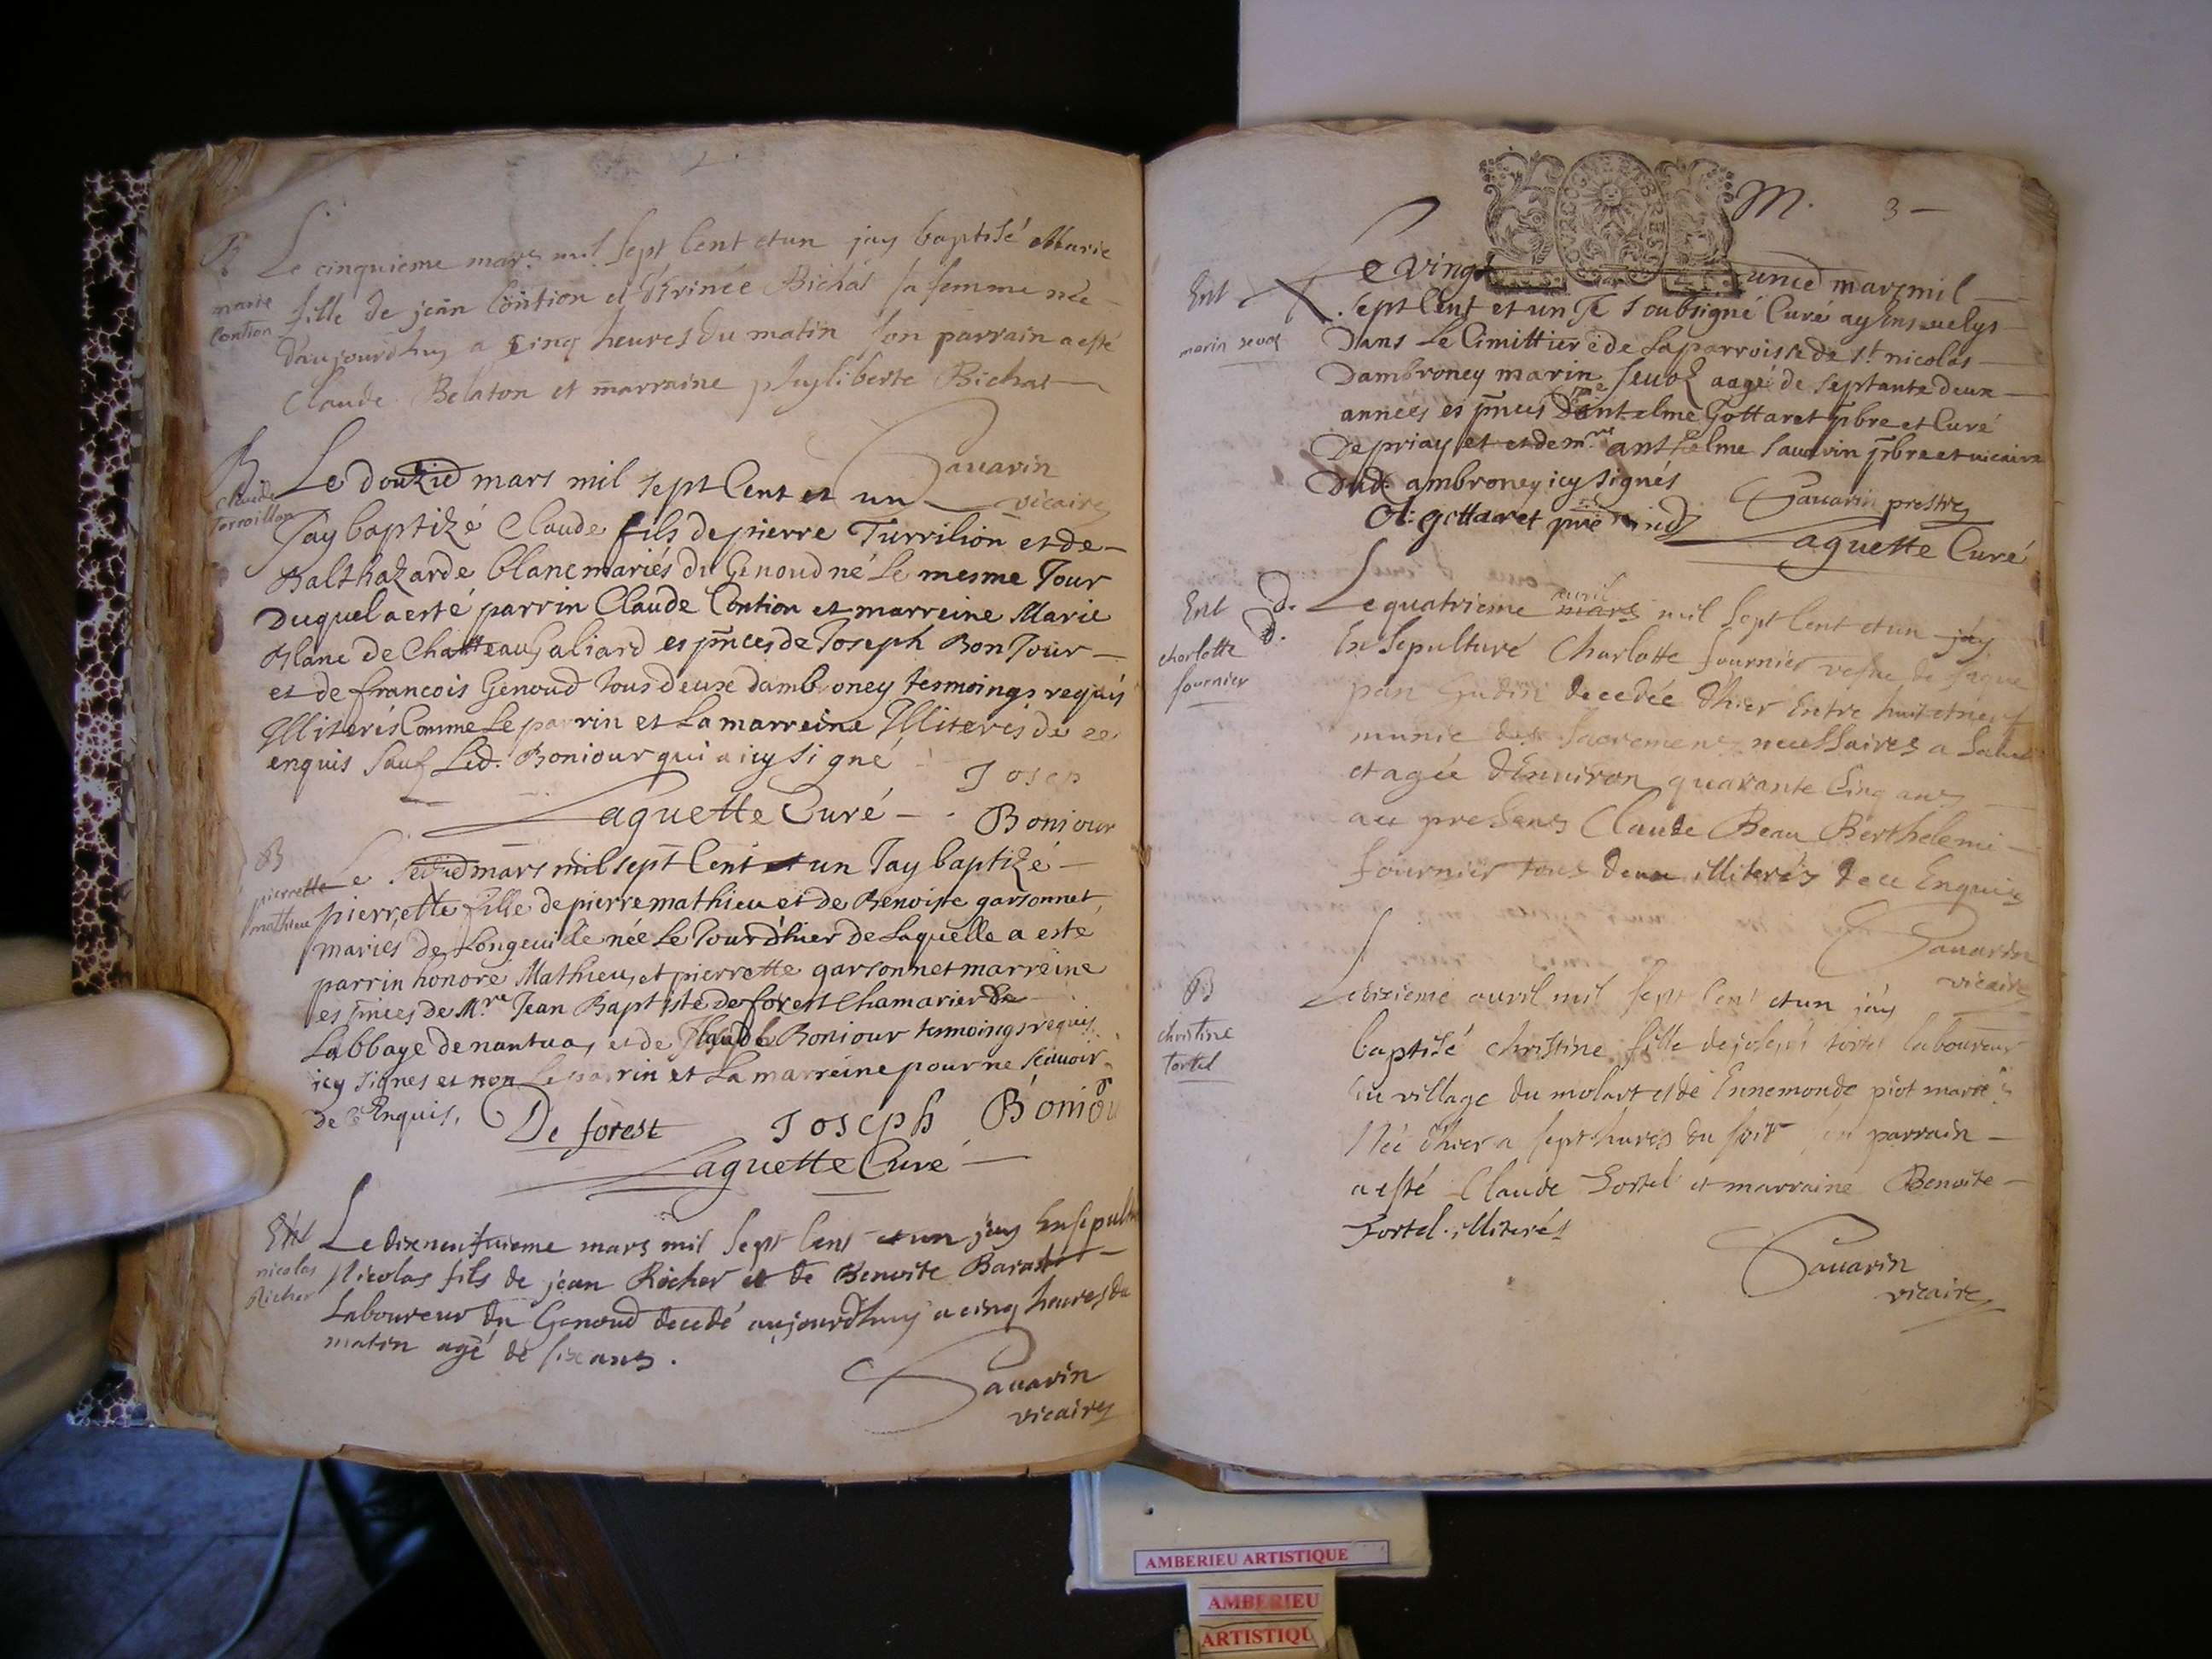 B
marie
Contion
Le cinquieme mars mil sept Cent et un jay baptisé Marie
fille de jean Contion et Bichat sa femme née
daujourdhuy a cinq heures du matin son parrain a esté
Claude Belaton et marraine phyliberte Bichat
Sauarin
vicaire
B
Claude
Torroillon
Le douzie mars mil sept Cent et un
Jay baptizé Claude fils de pierre Turrilion et de
Balthazarde blanc mariés du Genoud né le mesme Jour
Duquel a esté parrin Claude Contion et marreine Marie
Blanc de Chatteau Galiard es pnces de Joseph Bon Jour
et de francois Genoud tous deux dambroney tesmoings requis
Illiterés Comme le parrin et la marreine Illiterés de ce
enquis Sauf Led. Bonjour qui a icy signé
Josep
Laguette Curé
Bonjour
B
pierrette
mathieu
Le mars mil sept Cent et un Jay baptizé
pierrette fille de pierre mathieu et de Benoiste garsonnet
mariés de Longeuille née le Jour dhier de Laquelle a esté
parrin honoré Mathieu, et pierrette garsonnet marreine
es pnces de Mre Jean Baptiste deforest Chamarier de
Labbaye de nantua, et de Bonjour tesmoings requis
icy signés et non le parrin et La marreine pour ne scauoir
de ce Enquis,
De forest
Joseph Boniou
Laguette Curé
Ent
nicolas
Richer
Le dixneufuieme mars mil sept Cent et un jay Ensepult
Nicolas fils de jean Richer et de Benoite
Laboureur du Genoud decedé aujourdhuy a cinq heures du
matin agé de six ans.
Sauarin
vicaire
M. 3
GENERALITE
Ent
marin
Le vingt unied mars mil
sept Cent et un Je Soubsigné Curé ay Enseuelys
Dans Le Cimittiere de La parroisse de St nicolas
Dambroney marin aagé de septante deux
années es pnces Dantelme Gottaret pbre et Curé
De priay et et de mre anthelme Sauarin pbre et uicaire
Dud. ambroney icy signés
Sauarin prestre
A: gottaret
Laguette Curé
Ent
charlotte
fournier
d.
d.
Le quatrieme mars auril mil sept Cent et un jay
Ensepulturé Charlotte fournier vefue de
decedée dhier Entre huit et neuf
munie des sacremens necessaires a salut
et agée dEnuiron quarante Cinq ans
au presens Claude Beau Berthelemi
fournier tous deux illiterés de ce Enquis
Sauarin
vicaire
B
christine
tortel
Le dixieme auril mil sept Cent et un jay
baptisé christine fille de joseph tortel laboureur
du village du molart et de Ennemonde piot mariés
Née dhier a sept heures du soir son parrain
a esté Claude Tortel et marraine Benoite
Tortel. illiterés
Sauarin
vicaire
AMBERIEU ARTISTIQUE
AMBERIEU
ARTISTIQU